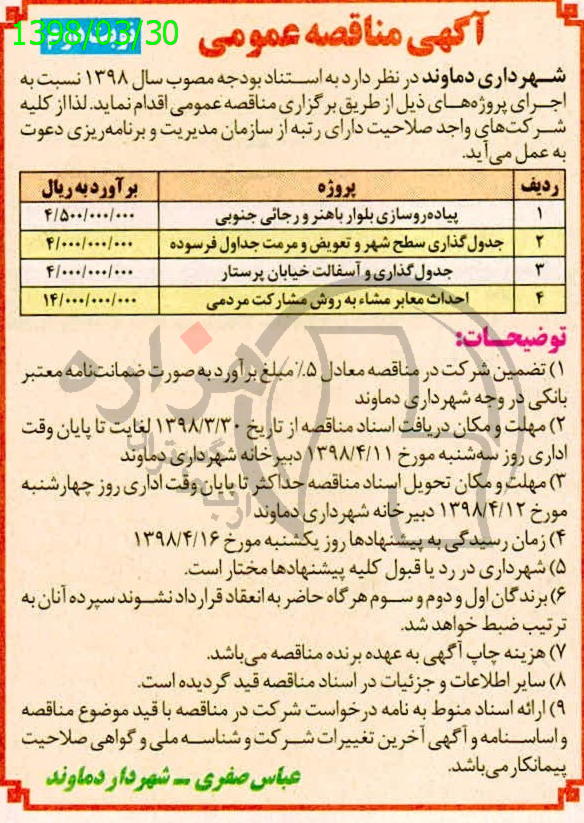 1398/03/30
آگهی مناقصه عمومی
شهرداری دماوند در نظر دارد به استناد بودجه مصوب سال ۱۳۹۸ نسبت به
اجرای پروژه‌های ذیل از طریق برگزاری مناقصه عمومی اقدام نماید. لذا از کلیه
شرکت‌های واجد صلاحیت دارای رتبه از سازمان مدیریت و برنامه‌ریزی دعوت
به عمل می‌آید.
ردیف پروژه برآورد به ریال
۱ پیاده‌روسازی بلوار باهنر و رجائی جنوبی ۴/۵۰۰/۰۰۰/۰۰۰
۲ جدول‌گذاری سطح شهر و تعویض و مرمت جداول فرسوده ۴/۰۰۰/۰۰۰/۰۰۰
۳ جدول‌گذاری و آسفالت خیابان پرستار ۴/۰۰۰/۰۰۰/۰۰۰
۴ احداث معابر مشاء به روش مشارکت مردمی ۱۴/۰۰۰/۰۰۰/۰۰۰
توضیحات:
۱) تضمین شرکت در مناقصه معادل ۵٪ مبلغ برآورد به صورت ضمانت‌نامه معتبر
بانکی در وجه شهرداری دماوند
۲) مهلت و مکان دریافت اسناد مناقصه از تاریخ ۱۳۹۸/۳/۳۰ لغایت تا پایان وقت
اداری روز سه‌شنبه مورخ ۱۳۹۸/۴/۱۱ دبیرخانه شهرداری دماوند
۳) مهلت و مکان تحویل اسناد مناقصه حداکثر تا پایان وقت اداری روز چهارشنبه
مورخ ۱۳۹۸/۴/۱۲ دبیرخانه شهرداری دماوند
۴) زمان رسیدگی به پیشنهادها روز یکشنبه مورخ ۱۳۹۸/۴/۱۶
۵) شهرداری در رد یا قبول کلیه پیشنهادها مختار است.
۶) برندگان اول و دوم و سوم هرگاه حاضر به انعقاد قرارداد نشوند سپرده آنان به
ترتیب ضبط خواهد شد.
۷) هزینه چاپ آگهی به عهده برنده مناقصه می‌باشد.
۸) سایر اطلاعات و جزئیات در اسناد مناقصه قید گردیده است.
۹) ارائه اسناد منوط به نامه درخواست شرکت در مناقصه با قید موضوع مناقصه
و اساسنامه و آگهی آخرین تغییرات شرکت و شناسه ملی و گواهی صلاحیت
پیمانکار می‌باشد.
عباس صفری – شهردار دماوند